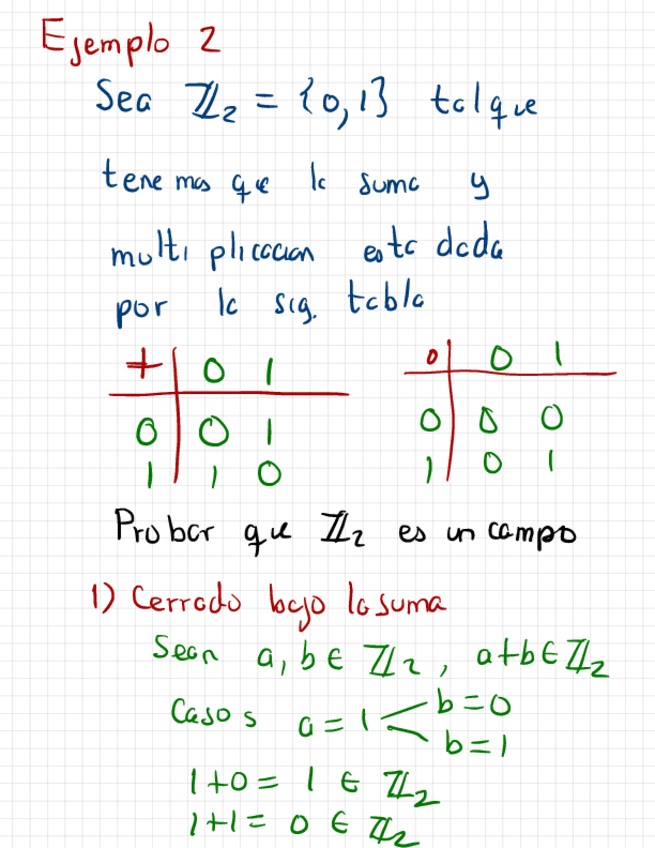 Ejemplo 2
Sea ℤ₂ = {0,1} tal que
tenemos que la suma y
multiplicacion esta dada
por la sig. tabla
+ | 0 1    o | 0 1
0 | 0 1    0 | 0 0
1 | 1 0    1 | 0 1
Probar que ℤ₂ es un campo
1) Cerrado bajo la suma
Sean a, b ∈ ℤ₂, a+b ∈ ℤ₂
Casos a = 1 < b = 0
b = 1
1+0 = 1 ∈ ℤ₂
1+1 = 0 ∈ ℤ₂